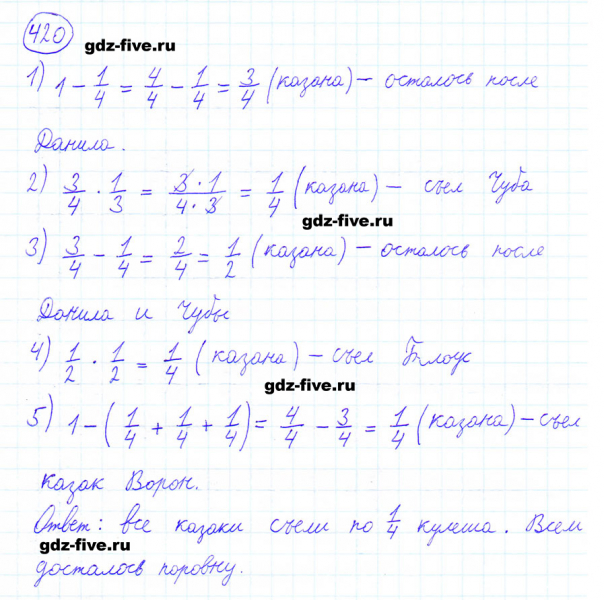 420
gdz-five.ru
1) 1 - 1/4 = 4/4 - 1/4 = 3/4 (казана) - осталось после
Данила.
2) 3/4 · 1/3 = 3·1/4·3 = 1/4 (казана) - съел Чуба
gdz-five.ru
3) 3/4 - 1/4 = 2/4 = 1/2 (казана) - осталось после
Данила и Чубы
4) 1/2 · 1/2 = 1/4 (казана) - съел Билоус
gdz-five.ru
5) 1 - (1/4 + 1/4 + 1/4) = 4/4 - 3/4 = 1/4 (казана) - съел
казак Ворон.
Ответ: все казаки съели по 1/4 кулеша. Всем
gdz-five.ru
досталось поровну.